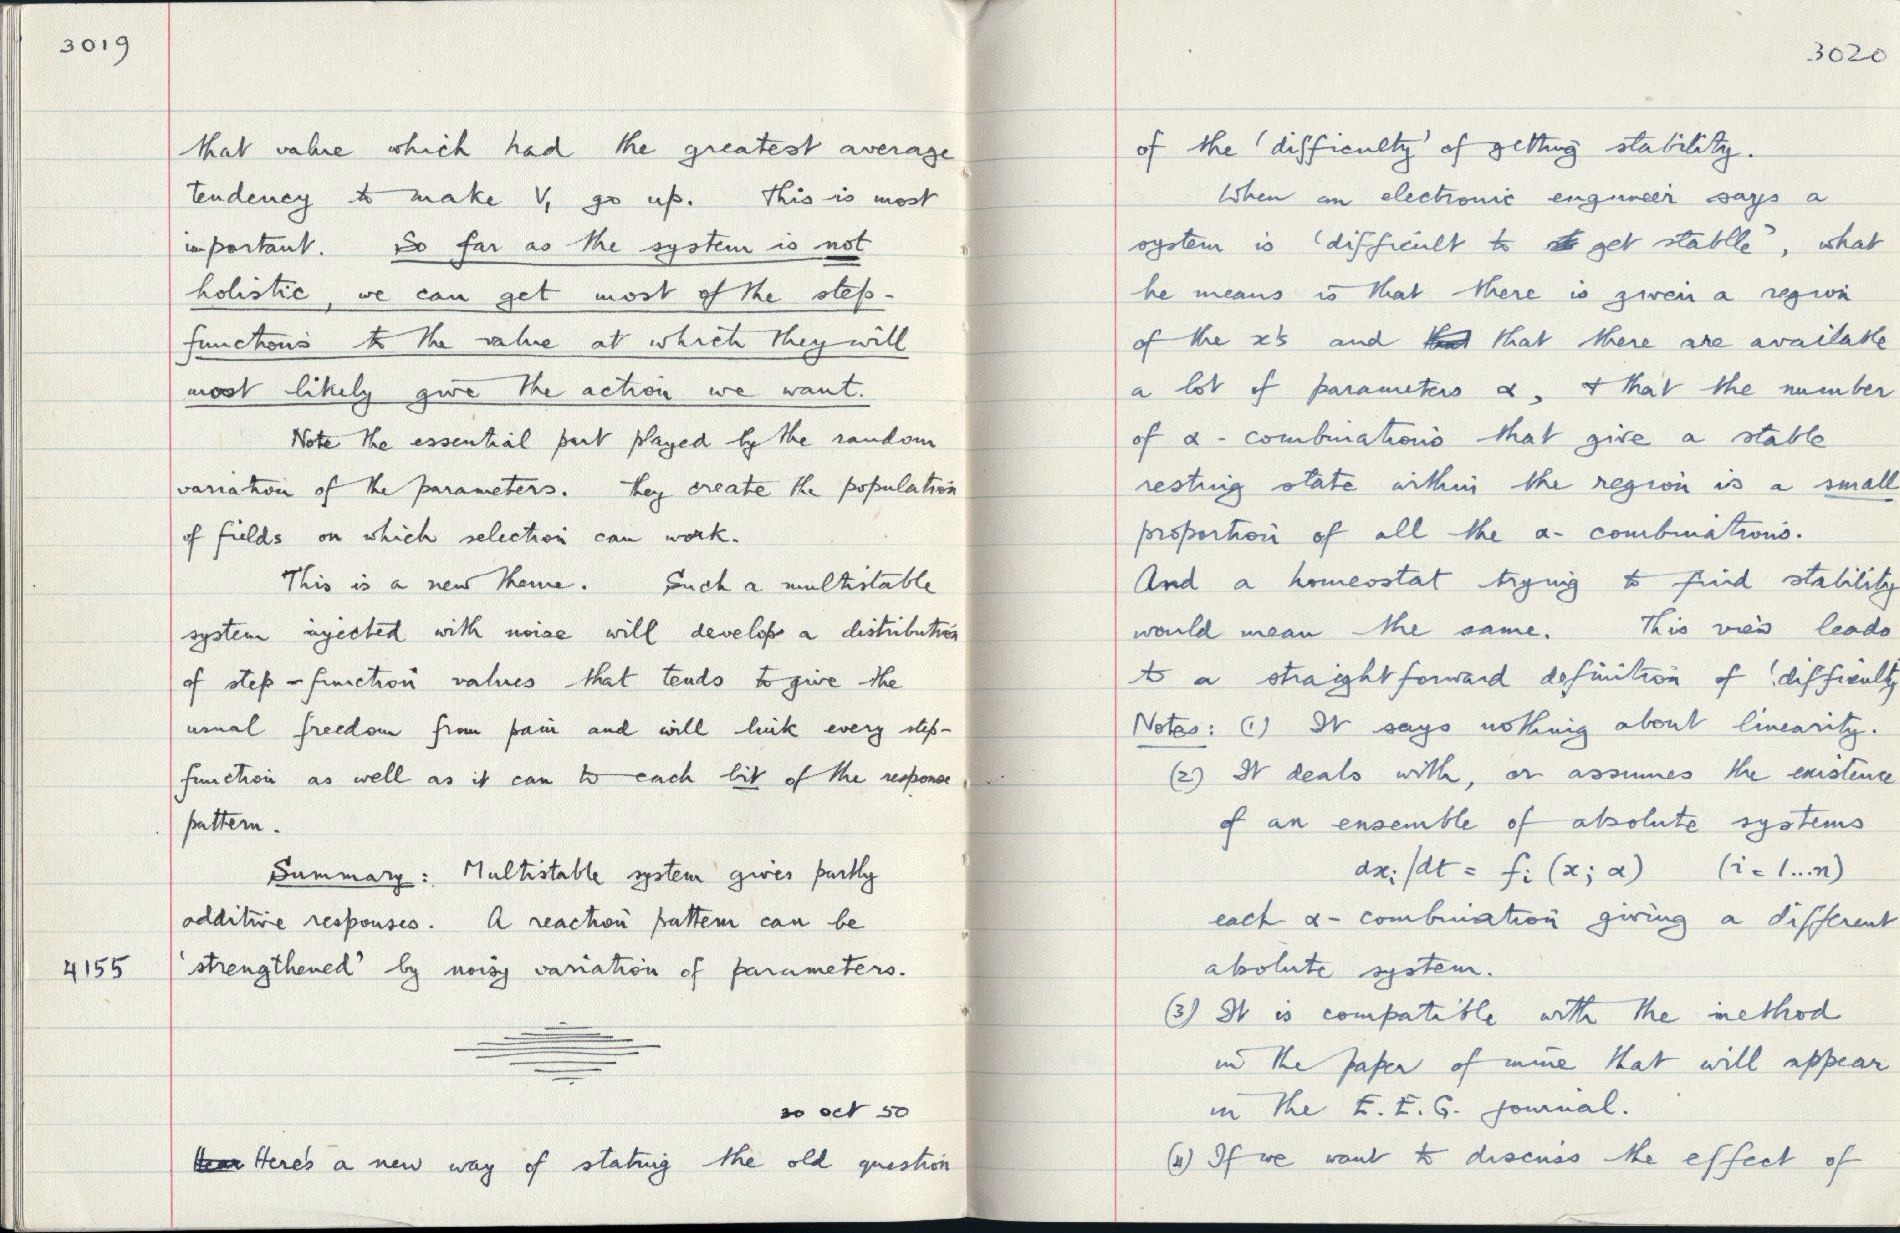 3019
that value which had the greatest average
tendency to make V₁ go up. This is most
important. So far as the system is not
holistic, we can get most of the step-
functions to the value at which they will
most likely give the action we want.
Note the essential part played by the random
variation of the parameters. They create the population
of fields on which selection can work.
This is a new theme. Such a multistable
system injected with noise will develop a distribution
of step-function values that tends to give the
usual freedom from pain and will link every step-
function as well as it can to each bit of the response
pattern.
Summary: Multistable system gives partly
additive responses. A reaction pattern can be
4155 'strengthened' by noisy variation of parameters.
30 Oct 50
Here's a new way of stating the old question
3020
of the 'difficulty' of getting stability.
When an electronic engineer says a
system is 'difficult to get stable', what
he means is that there is given a region
of the x's and that there are available
a lot of parameters α, + that the number
of α-combinations that give a stable
resting state within the region is a small
proportion of all the α-combinations.
And a homeostat trying to find stability
would mean the same. This view leads
to a straightforward definition of 'difficulty
Notes: (1) It says nothing about linearity.
(2) It deals with, or assumes the existence
of an ensemble of absolute systems
dxᵢ/dt = fᵢ (x; α) (i = 1...n)
each α-combination giving a different
absolute system.
(3) It is compatible with the method
in the paper of mine that will appear
in the E.E.G. journal.
(4) If we want to discuss the effect of